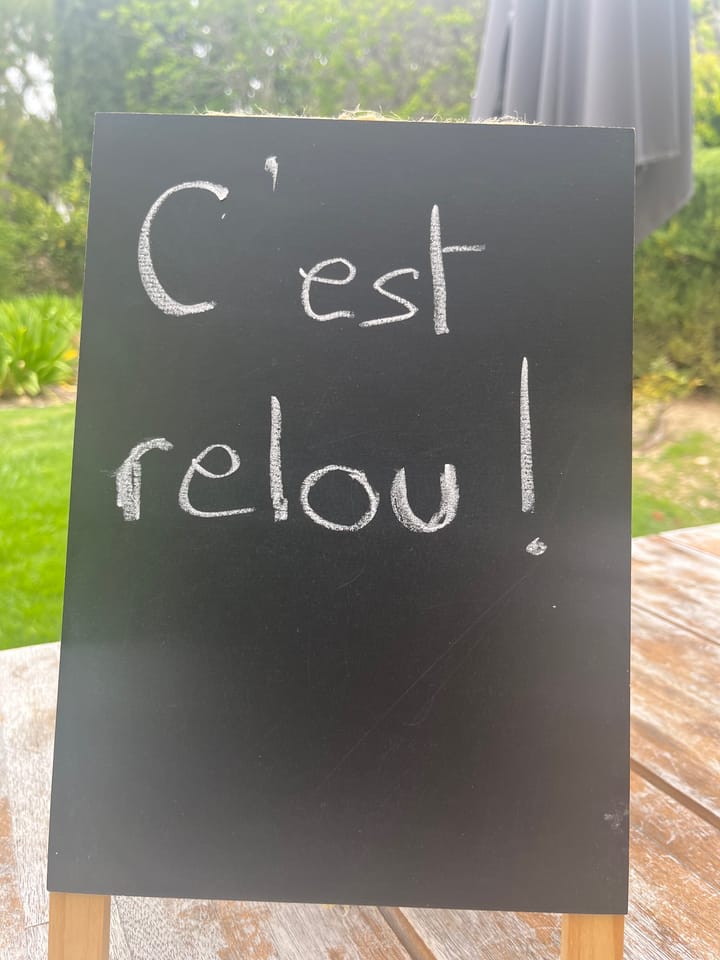 C'est
relou!